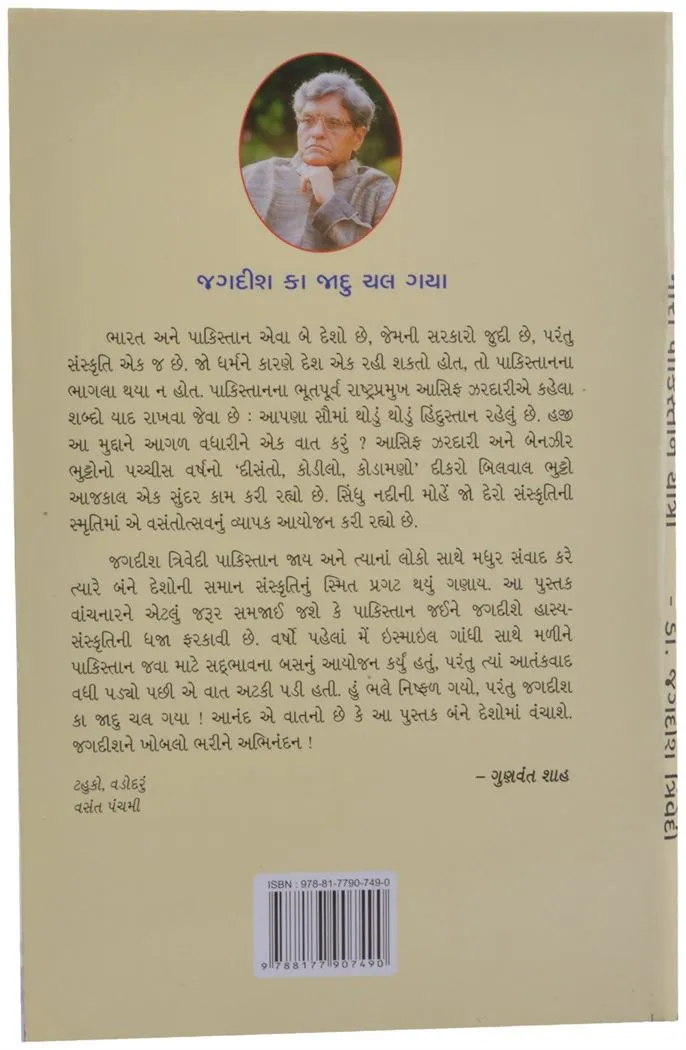 જગદીશ કા જાદુ ચલ ગયા
ભારત અને પાકિસ્તાન એવા બે દેશો છે, જેમની સરકારો જુદી છે, પરંતુ
સંસ્કૃતિ એક જ છે. જો ધર્મને કારણે દેશ એક રહી શકતો હોત, તો પાકિસ્તાનના
ભાગલા થયા ન હોત. પાકિસ્તાનના ભૂતપૂર્વ રાષ્ટ્રપ્રમુખ આસિફ ઝરદારીએ કહેલા
શબ્દો યાદ રાખવા જેવા છે : આપણા સૌમાં થોડું થોડું હિંદુસ્તાન રહેલું છે. હજી
આ મુદ્દાને આગળ વધારીને એક વાત કરું ? આસિફ ઝરદારી અને બેનઝીર
ભુટ્ટોનો પચ્ચીસ વર્ષનો ‘દીસંતો, કોડીલો, કોડામણો’ દીકરો બિલવાલ ભુટ્ટો
આજકાલ એક સુંદર કામ કરી રહ્યો છે. સિંધુ નદીની મોહેં જો દેરો સંસ્કૃતિની
સ્મૃતિમાં એ વસંતોત્સવનું વ્યાપક આયોજન કરી રહ્યો છે.
જગદીશ ત્રિવેદી પાકિસ્તાન જાય અને ત્યાંનાં લોકો સાથે મધુર સંવાદ કરે
ત્યારે બંને દેશોની સમાન સંસ્કૃતિનું સ્મિત પ્રગટ થયું ગણાય. આ પુસ્તક
વાંચનારને એટલું જરૂર સમજાઈ જશે કે પાકિસ્તાન જઈને જગદીશે હાસ્ય-
સંસ્કૃતિની ધજા ફરકાવી છે. વર્ષો પહેલાં મેં ઇસ્માઇલ ગાંધી સાથે મળીને
પાકિસ્તાન જવા માટે સદ્‌ભાવના બસનું આયોજન કર્યું હતું, પરંતુ ત્યાં આતંકવાદ
વધી પડ્યો પછી એ વાત અટકી પડી હતી. હું ભલે નિષ્ફળ ગયો, પરંતુ જગદીશ
કા જાદુ ચલ ગયા ! આનંદ એ વાતનો છે કે આ પુસ્તક બંને દેશોમાં વંચાશે.
જગદીશને ખોબલો ભરીને અભિનંદન !
– ગુણવંત શાહ
ટહુકો, વડોદરું
વસંત પંચમી
ISBN : 978-81-7790-749-0
9 788177 907490
પાકિસ્તાન યાત્રા – ડૉ. જગદીશ ત્રિવેદી